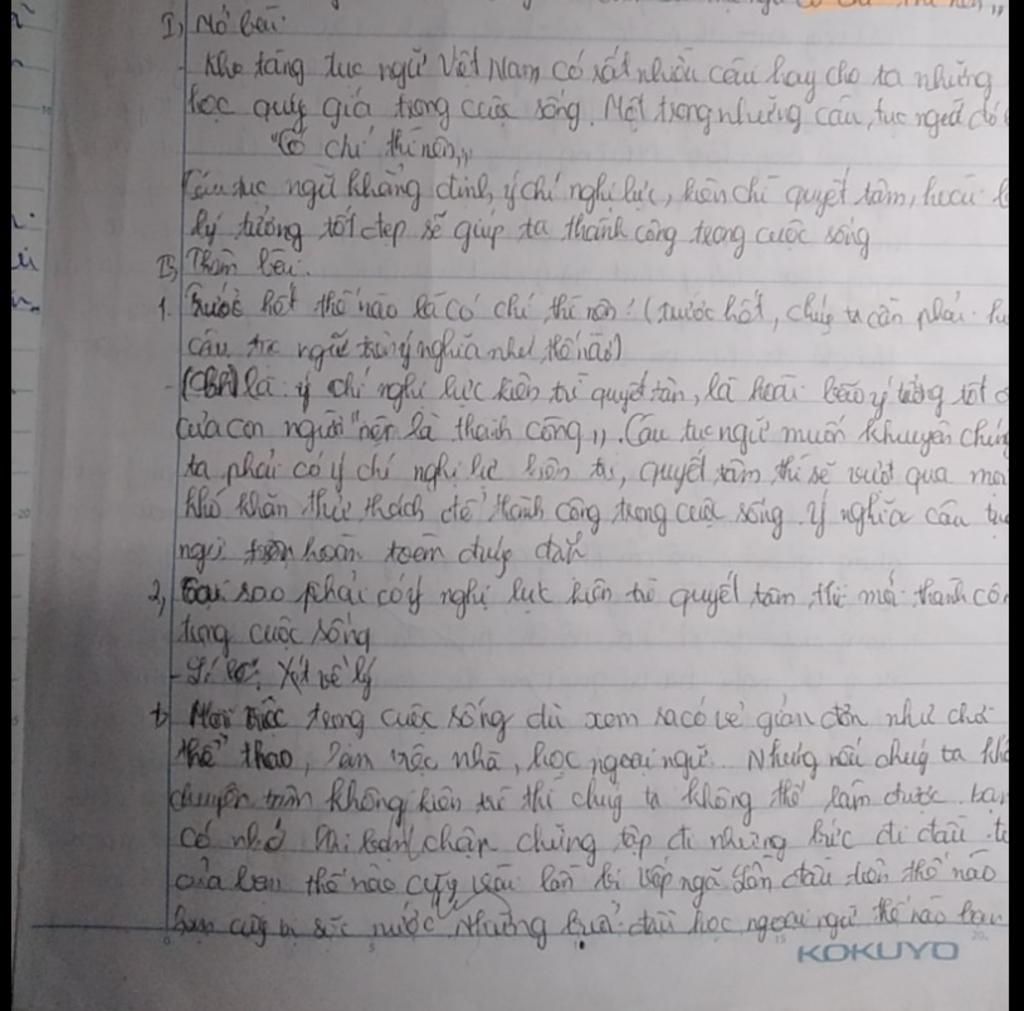 I, Mở bài
- Kho tàng tục ngữ Việt Nam có rất nhiều câu hay cho ta những
học quý giá trong cuộc sống. Một trong những câu tục ngữ đó
"Có chí thì nên"
Câu tục ngữ khẳng định, ý chí nghị lực, kiên chì quyết tâm, hoài
lý tưởng tốt đẹp sẽ giúp ta thành công trong cuộc sống
II, Thân bài.
1. Trước hết thế nào là có chí thì nên? (trước hết, chúng ta cần phải
câu tục ngữ ý nghĩa như thế nào)
- là ý chí nghị lực kiên trì quyết tâm, là hoài bão ý tưởng tốt
của con người "nên là thành công". Câu tục ngữ muốn khuyên chúng
ta phải có ý chí nghị lực kiên trì, quyết tâm thì sẽ vượt qua mọi
khó khăn thử thách để thành công trong cuộc sống ý nghĩa câu tục
ngữ trên hoàn toàn đúng đắn
2, Tại sao phải có ý nghị lực kiên trì quyết tâm thì mới thành côn
trong cuộc sống
- Xét về lý
Mọi việc trong cuộc sống dù xem ra có vẻ giản đơn như chơi
thể thao, làm việc nhà, học ngoại ngữ. Nhưng nếu chúng ta
chuyên không kiên trì thì chúng ta không thể làm được. bạn
có nhớ khi chập chững tập đi những bước đi đầu
của bạn thế nào cũng lần bị vấp ngã lần đầu tiên thế nào
bạn cũng bị sặc nước Những buổi đầu học ngoại ngữ thế nào bạn
KOKUYO